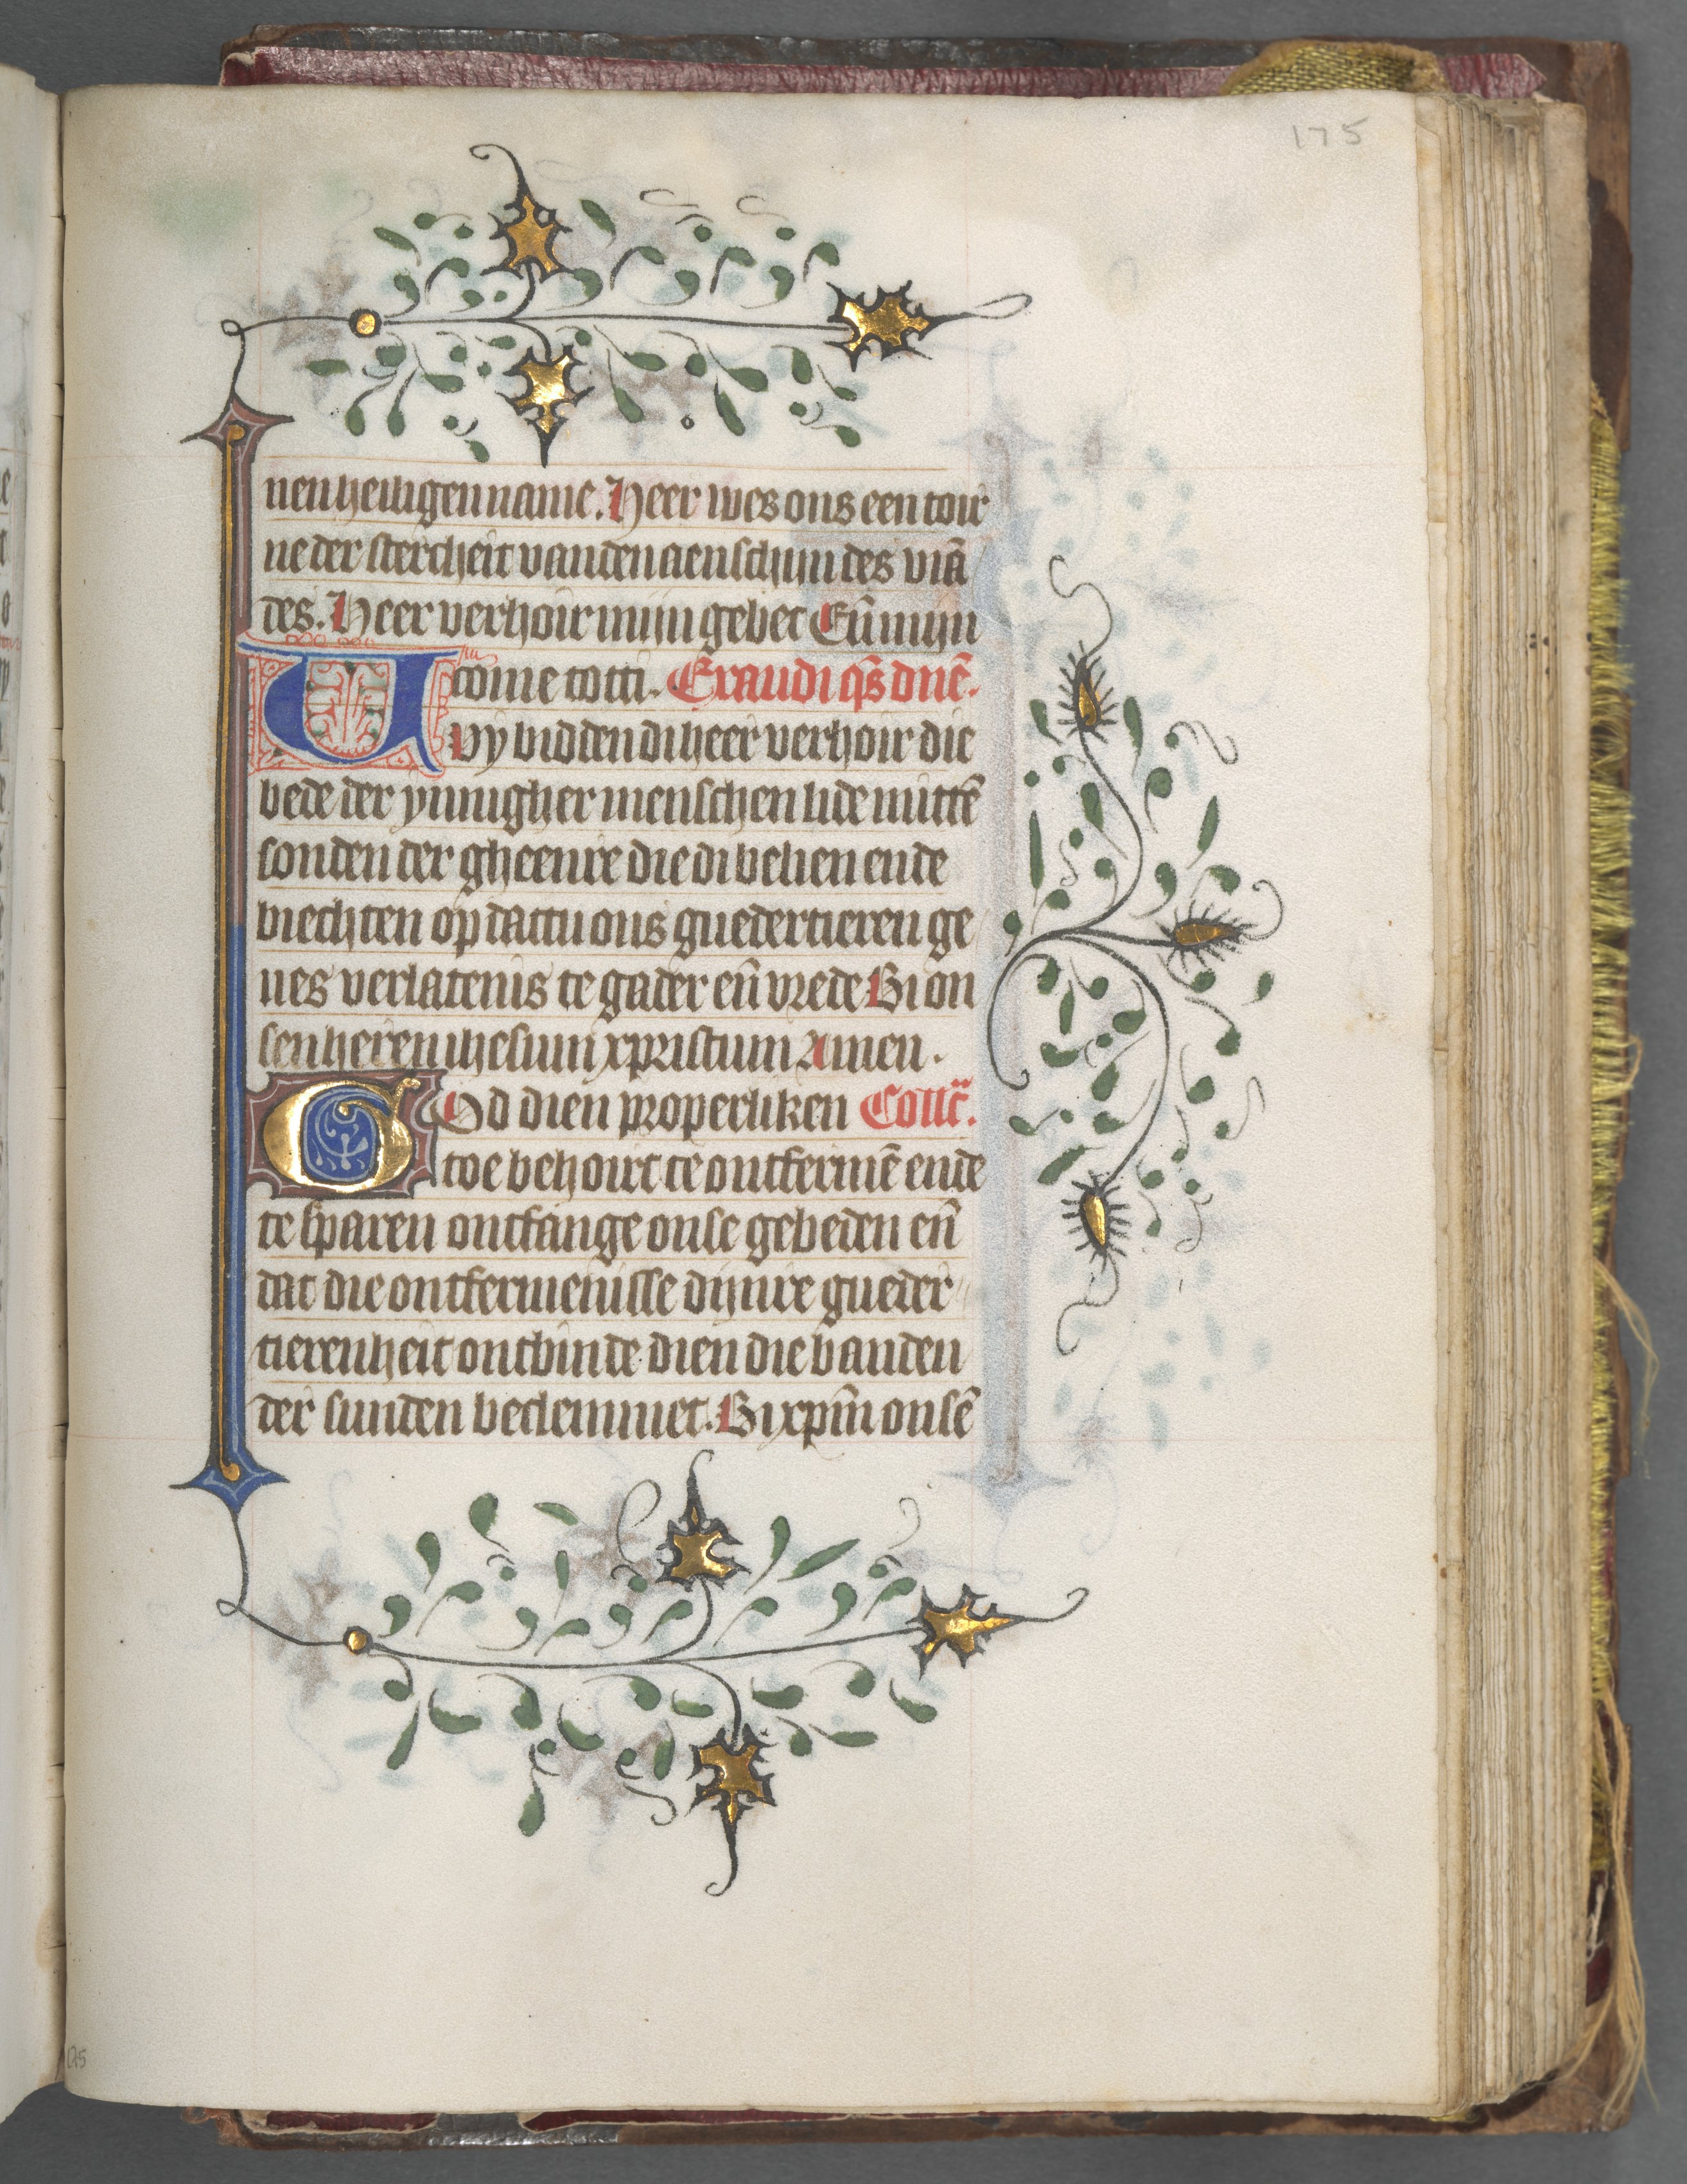 175
nen heiligen name. Heer wes ons een toir
ne der stercheit van den aenschijn des viā
des. Heer verhoir mijn gebet Eñ mijn
come totti. Exaudi q̄s dn̄e.
Vvy bidden di heer verhoir die
bede der ynnigher menschen lide mittē
sonden der gheenre die di belien ende
biechten op dattu ons guedertieren ge
ues verlatenis te gader eñ vrede Bi on
sen heren ihesum xpristum Amen.
God dien properliken Coll̄c.
toe behoirt te ontfermē ende
te sparen ontfange onse gebeden eñ
dat die ontfermenisse dijnre gueder
tierenheit ontbinde dien die banden
der sunden beclemmet. Bi xp̄m onsē
175